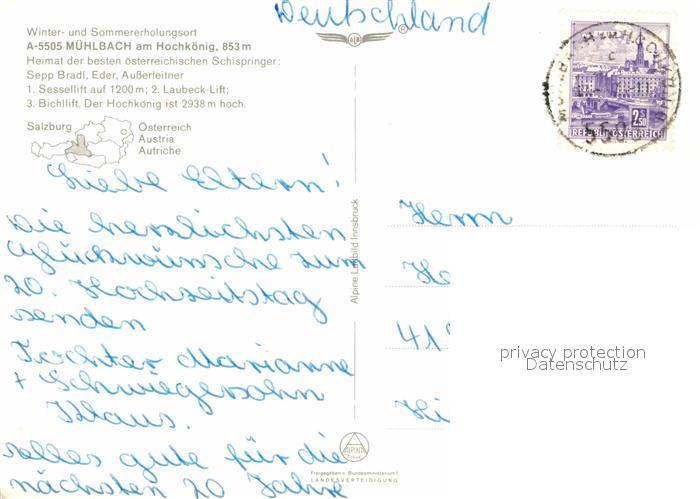 Deutschland
Winter- und Sommererholungsort
A-5505 MÜHLBACH am Hochkönig, 853 m
Heimat der besten österreichischen Schispringer:
Sepp Bradl, Eder, Außerleitner
1. Sessellift auf 1200 m; 2. Laubeck-Lift;
3. Bichllift. Der Hochkönig ist 2938 m hoch.
Salzburg
Österreich
Austria
Autriche
Liebe Eltern!
Die herzlichsten
Glückwünsche zum
20. Hochzeitstag
senden
Tochter Marianne
+ Schwiegersohn
Klaus.
alles gute für die
nächsten 20 Jahre
Alpine Luftbild Innsbruck
2.50
REPUBLIK ÖSTERREICH
5505
Herrn
He
41
Hi
privacy protection
Datenschutz
ALPINE
Freigegeben v. Bundesministerium f.
LANDESVERTEIDIGUNG